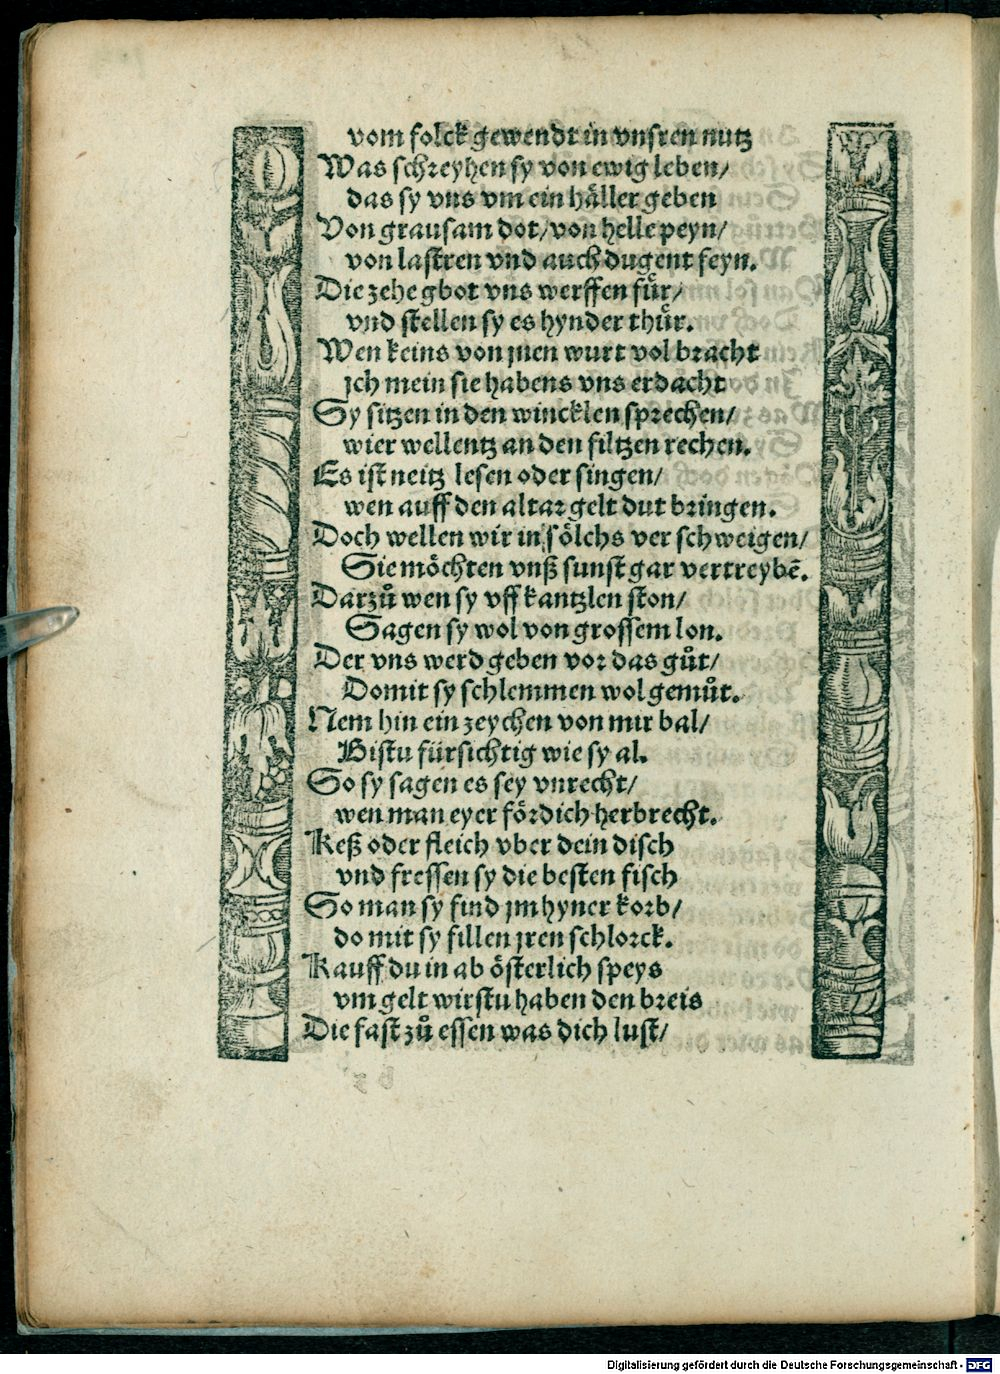 vom folck gewendt in vnsren nutz
Was schreyhen sy von ewig leben/
das sy vns vm ein häller geben
Von grausam dot/von helle peyn/
von lastren vnd auch dugent feyn.
Die zehe gbot vns werffen für/
vnd stellen sy es hynder thür.
Wen keins von jnen wurt vol bracht
jch mein sie habens vns erdacht
Sy sitzen in den wincklen sprechen/
wier wellentz an den filtzen rechen.
Es ist neitz lesen oder singen/
wen auff den altar gelt dut bringen.
Doch wellen wir in sölchs ver schweigen/
Sie möchten vnß sunst gar vertreybē.
Darzů wen sy vff kantzlen ston/
Sagen sy wol von grossem lon.
Der vns werd geben vor das gůt/
Domit sy schlemmen wol gemůt.
Nem hin ein zeychen von mir bal/
Bistu fürsichtig wie sy al.
So sy sagen es sey vnrecht/
wen man eyer för dich herbrecht.
Keß oder fleich vber dein disch
vnd fressen sy die besten fisch
So man sy find jm hyner korb/
do mit sy fillen jren schlorck.
Kauff du in ab österlich speys
vm gelt wirstu haben den breis
Die fast zů essen was dich lust/
Digitalisierung gefördert durch die Deutsche Forschungsgemeinschaft - DFG